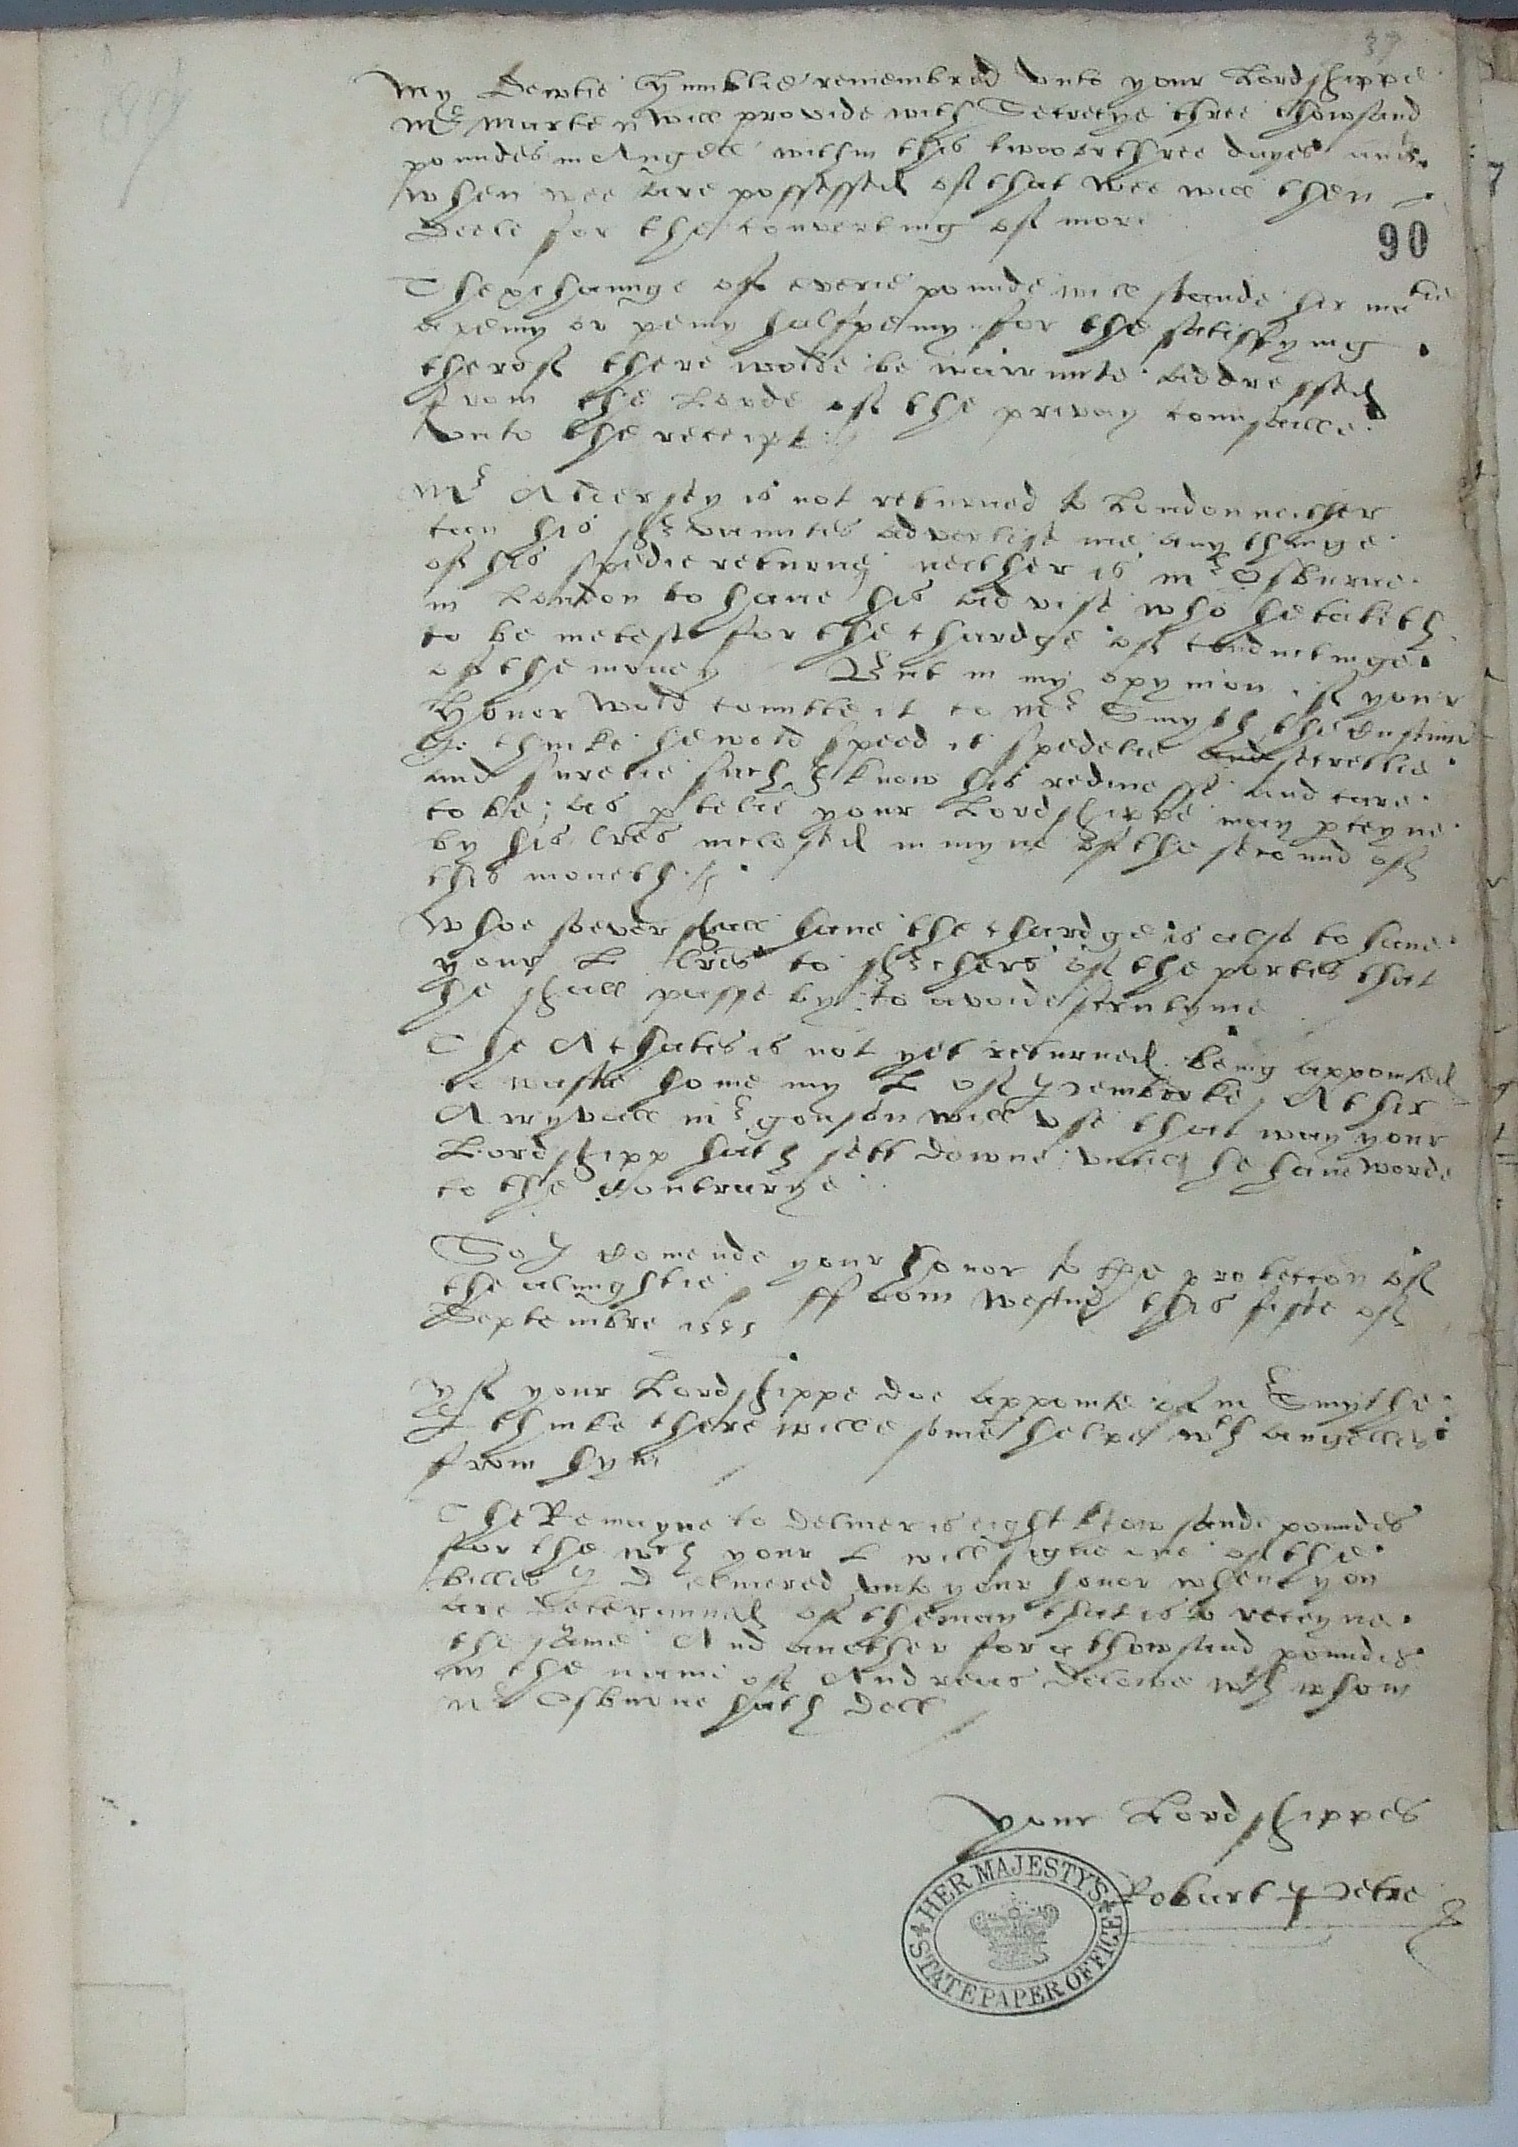 37
My Dewtie Humblie remembred unto your Lordshippe
Mr Marten will provide with Secretye three thowsand
poundes in Angell within this twoo or three dayes and
when wee are possessed of that wee will then
Deele for the converting of more
90
Thexchaunge of everie pounde will stande hir matie
a penny or penny halfpenny for the satisfying
therof there wolde be warrante addressed
from the Lorde of the privay counsaille
unto the receipt
Mr Aldersey is not returned to London neither
can his servauntes advertise me any thinge
of his spedie returne neither is Mr Osburne
in London to have his advise who he taketh
to be metest for the chardge of conductinge
of the money But in my opynion if your
Honor wold comitte it to Mr Smyth the Custimer
I thinke he wold speed it spedelie and secretlie
and surelie such I know his redinesse and care
to be; as ptelie your Lordshippe may pceyne
by his lres inclosed in myne of the second of
this moneth
Whoe soever shall have the chardge is also to have
your L lres to serchers of the portes that
he shall passe by to avoide scrutyme
The Achates is not yet returned being appointed
to wafte home my L of Pembroke At hir
Arryvall Mr gonson will use that way your
Lordshipp hath sett downe untill he have worde
to the Contrarye
So I Comende your honor to the protection of
the almightie ffrom Westmr this fifte of
Septembre 1585
Yf your Lordshippe doe appointe of Mr Smythe
I thinke there wilbe some helpe wth angelles
from hym
The Remayne to deliver is eight thowsande poundes
for the wch your L will signe one of the
billes I delivered unto your honor when you
are determined of the man that is to receyve
the same And another for a thowsand poundes
in the name of Andreas Delowe wth whom
Mr Osburne hath dell
your Lordshippes
Robart Petre
HER MAJESTY'S
STATE PAPER OFFICE